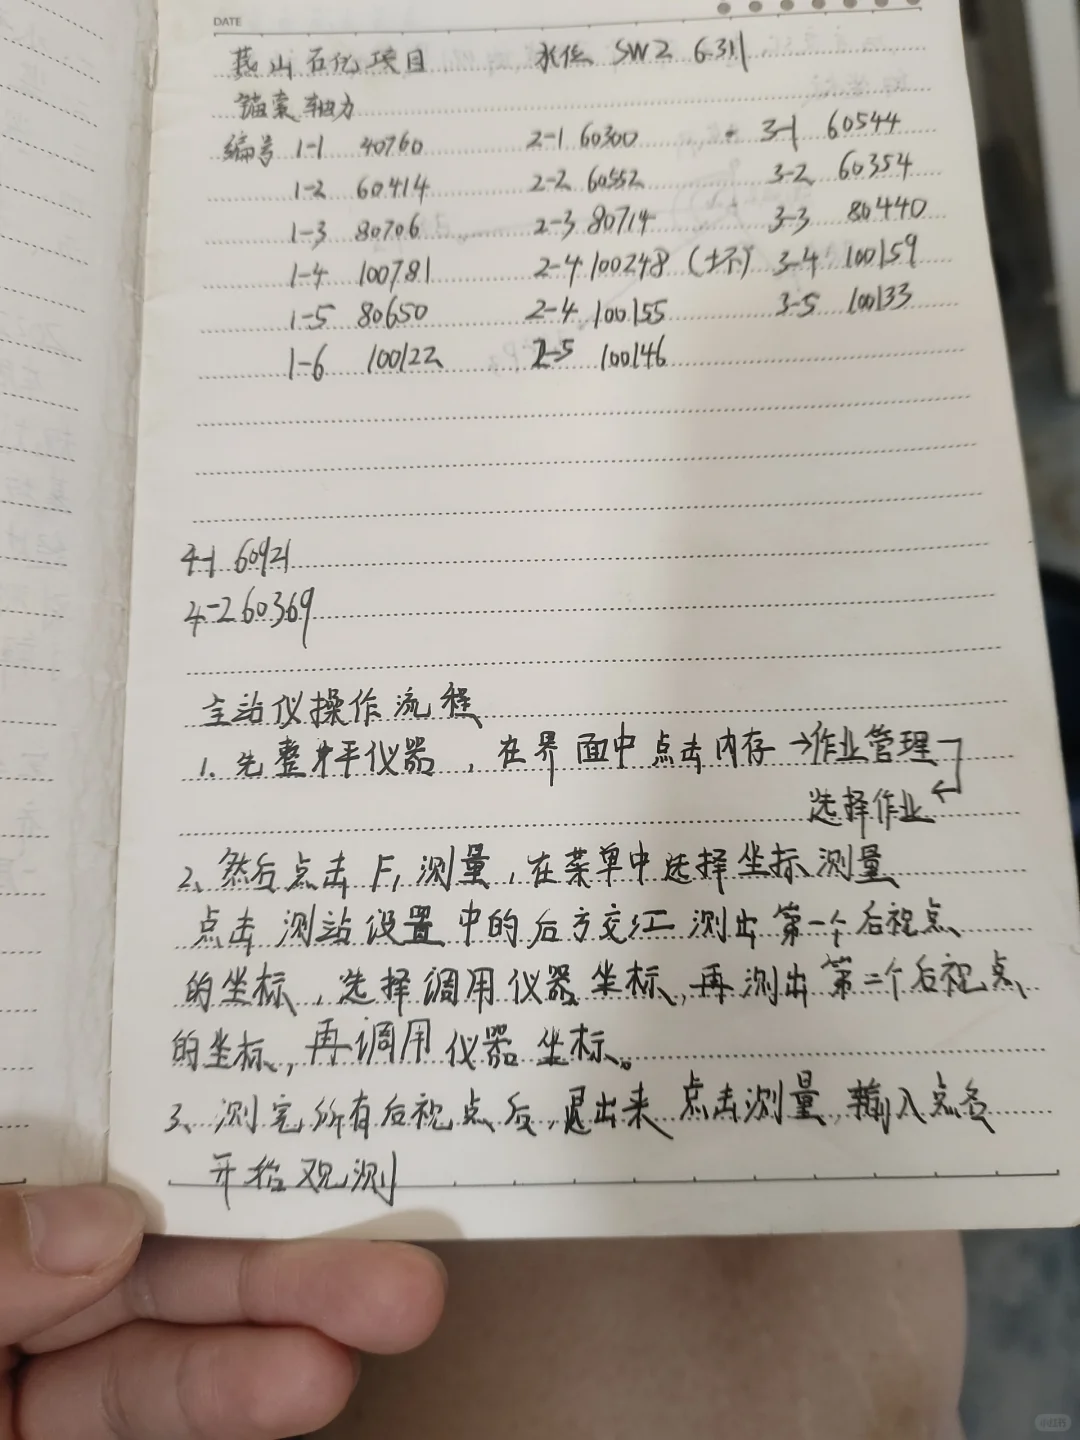 DATE
山石化项目 水位 SW2 6.311
锚索轴力
编号 1-1 40760 2-1 60300 3-1 60544
1-2 60414 2-2 60552 3-2 60354
1-3 80706 2-3 80714 3-3 80440
1-4 100781 2-4 100248 (坏) 3-4 100159
1-5 80650 2-4 100155 3-5 100133
1-6 100122 2-5 100146
4-1 60921
4-2 60369
全站仪操作流程
1. 先整平仪器，在界面中点击内存→作业管理
选择作业
2、然后点击F1测量，在菜单中选择坐标测量
点击测站设置中的后方交汇 测出第一个后视点
的坐标，选择调用仪器坐标，再测出第二个后视点
的坐标，再调用仪器坐标。
3、测完所有后视点后，退出来点击测量，输入点名
开始观测
小红书